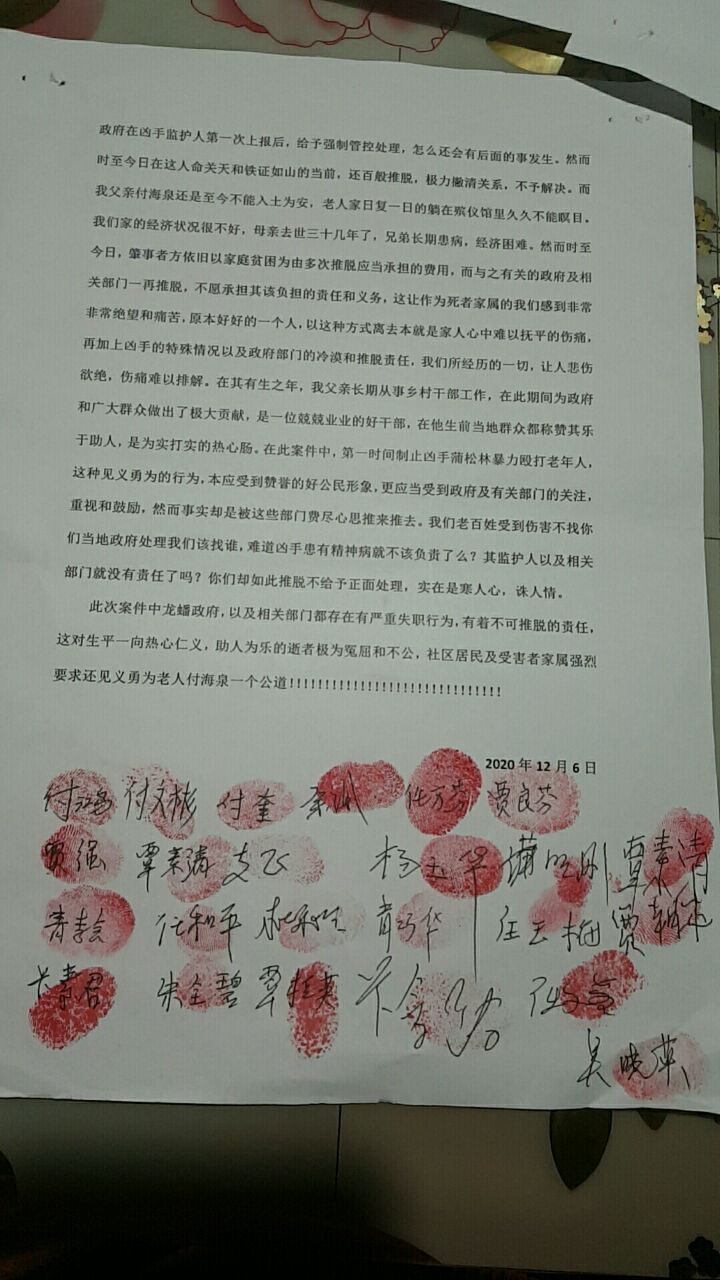 政府在凶手监护人第一次上报后，给予强制管控处理，怎么还会有后面的事发生。然而
时至今日在这人命关天和铁证如山的当前，还百般推脱，极力撇清关系，不予解决。而
我父亲付海泉还是至今不能入土为安，老人家日复一日的躺在殡仪馆里久久不能瞑目。
我们家的经济状况很不好，母亲去世三十几年了，兄弟长期患病，经济困难。然而时至
今日，肇事者方依旧以家庭贫困为由多次推脱应当承担的费用，而与之有关的政府及相
关部门一再推脱，不愿承担其该负担的责任和义务，这让作为死者家属的我们感到非常
非常绝望和痛苦，原本好好的一个人，以这种方式离去本就是家人心中难以抚平的伤痛，
再加上凶手的特殊情况以及政府部门的冷漠和推脱责任，我们所经历的一切，让人悲伤
欲绝，伤痛难以排解。在其有生之年，我父亲长期从事乡村干部工作，在此期间为政府
和广大群众做出了极大贡献，是一位兢兢业业的好干部，在他生前当地群众都称赞其乐
于助人，是为实打实的热心肠。在此案件中，第一时间制止凶手蒲松林暴力殴打老年人，
这种见义勇为的行为，本应受到赞誉的好公民形象，更应当受到政府及有关部门的关注，
重视和鼓励，然而事实却是被这些部门费尽心思推来推去。我们老百姓受到伤害不找你
们当地政府处理我们该找谁，难道凶手患有精神病就不该负责了么？其监护人以及相关
部门就没有责任了吗？你们却如此推脱不给予正面处理，实在是寒人心，诛人情。
此次案件中龙蟠政府，以及相关部门都存在有严重失职行为，有着不可推脱的责任，
这对生平一向热心仁义，助人为乐的逝者极为冤屈和不公，社区居民及受害者家属强烈
要求还见义勇为老人付海泉一个公道!!!!!!!!!!!!!!!!!!!!!!!!!!!!!!
2020 年 12 月 6 日
付文彬 付奎 任万芬 贾良芬
贾强 支飞 杨玉华 覃素清
任和平 任云梅
朱全碧
吴晓燕